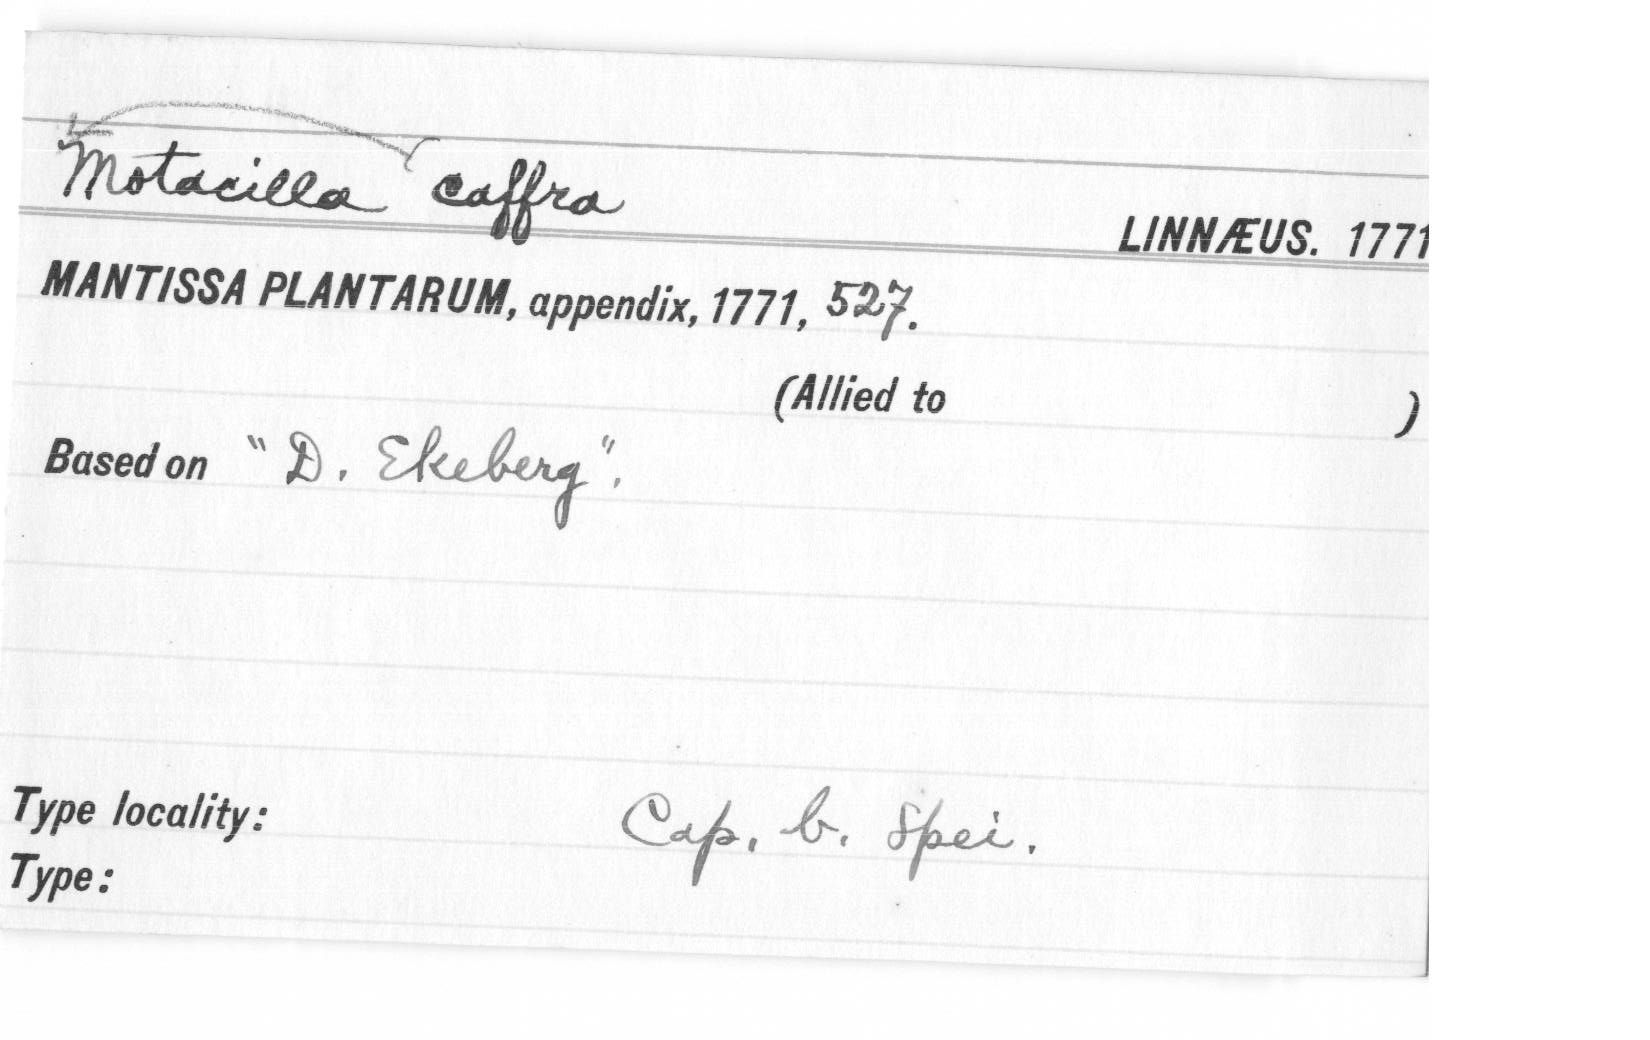 Motacilla caffra
LINNÆUS. 1771
MANTISSA PLANTARUM, appendix, 1771, 527.
(Allied to )
Based on "D. Ekeberg".
Type locality: Cap. b. Spei.
Type: